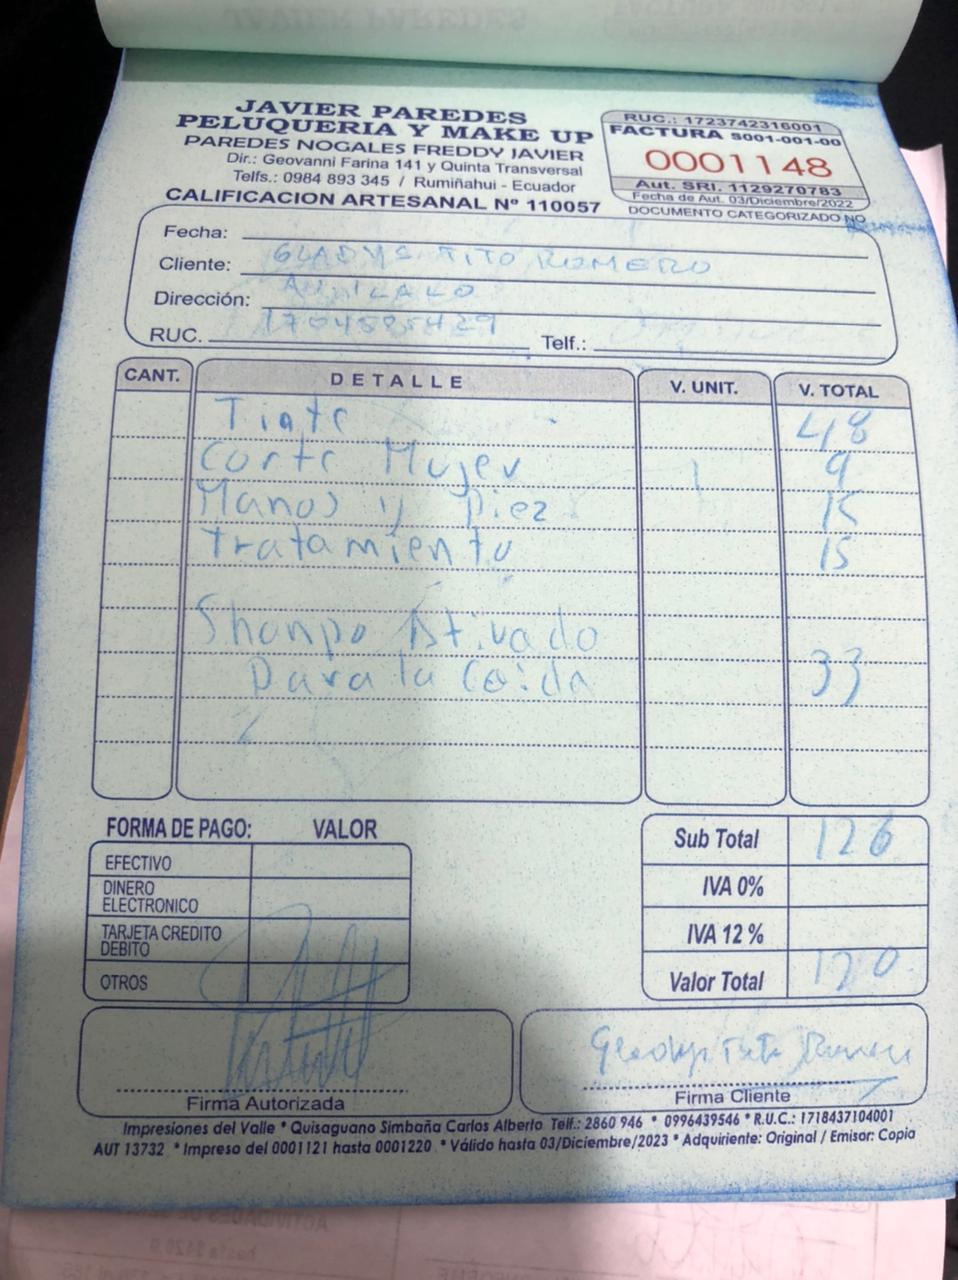 JAVIER PAREDES
PELUQUERIA Y MAKE UP
PAREDES NOGALES FREDDY JAVIER
Dir.: Geovanni Farina 141 y Quinta Transversal
Telfs.: 0984 893 345 / Rumiñahui - Ecuador
CALIFICACION ARTESANAL Nº 110057
RUC.: 1723742316001
FACTURA S001-001-00
0001148
Aut. SRI. 1129270783
Fecha de Aut. 03/Diciembre/2022
DOCUMENTO CATEGORIZADO NO
Fecha:
Cliente: GLADYS TITO ROMERO
Dirección:
RUC. Telf.:
CANT. DETALLE V. UNIT. V. TOTAL
Tinte 48
Corte Mujer 9
Manos y Piez 15
Tratamiento 15
Shanpo Ativado
Para la Caida 33
FORMA DE PAGO: VALOR
EFECTIVO
DINERO
ELECTRONICO
TARJETA CREDITO
DEBITO
OTROS
Sub Total 120
IVA 0%
IVA 12 %
Valor Total 120
Gladys Tito Romero
Firma Autorizada
Firma Cliente
Impresiones del Valle * Quisaguano Simbaña Carlos Alberto Telf.: 2860 946 * 0996439546 * R.U.C.: 1718437104001
AUT 13732 * Impreso del 0001121 hasta 0001220 * Válido hasta 03/Diciembre/2023 * Adquiriente: Original / Emisor: Copia